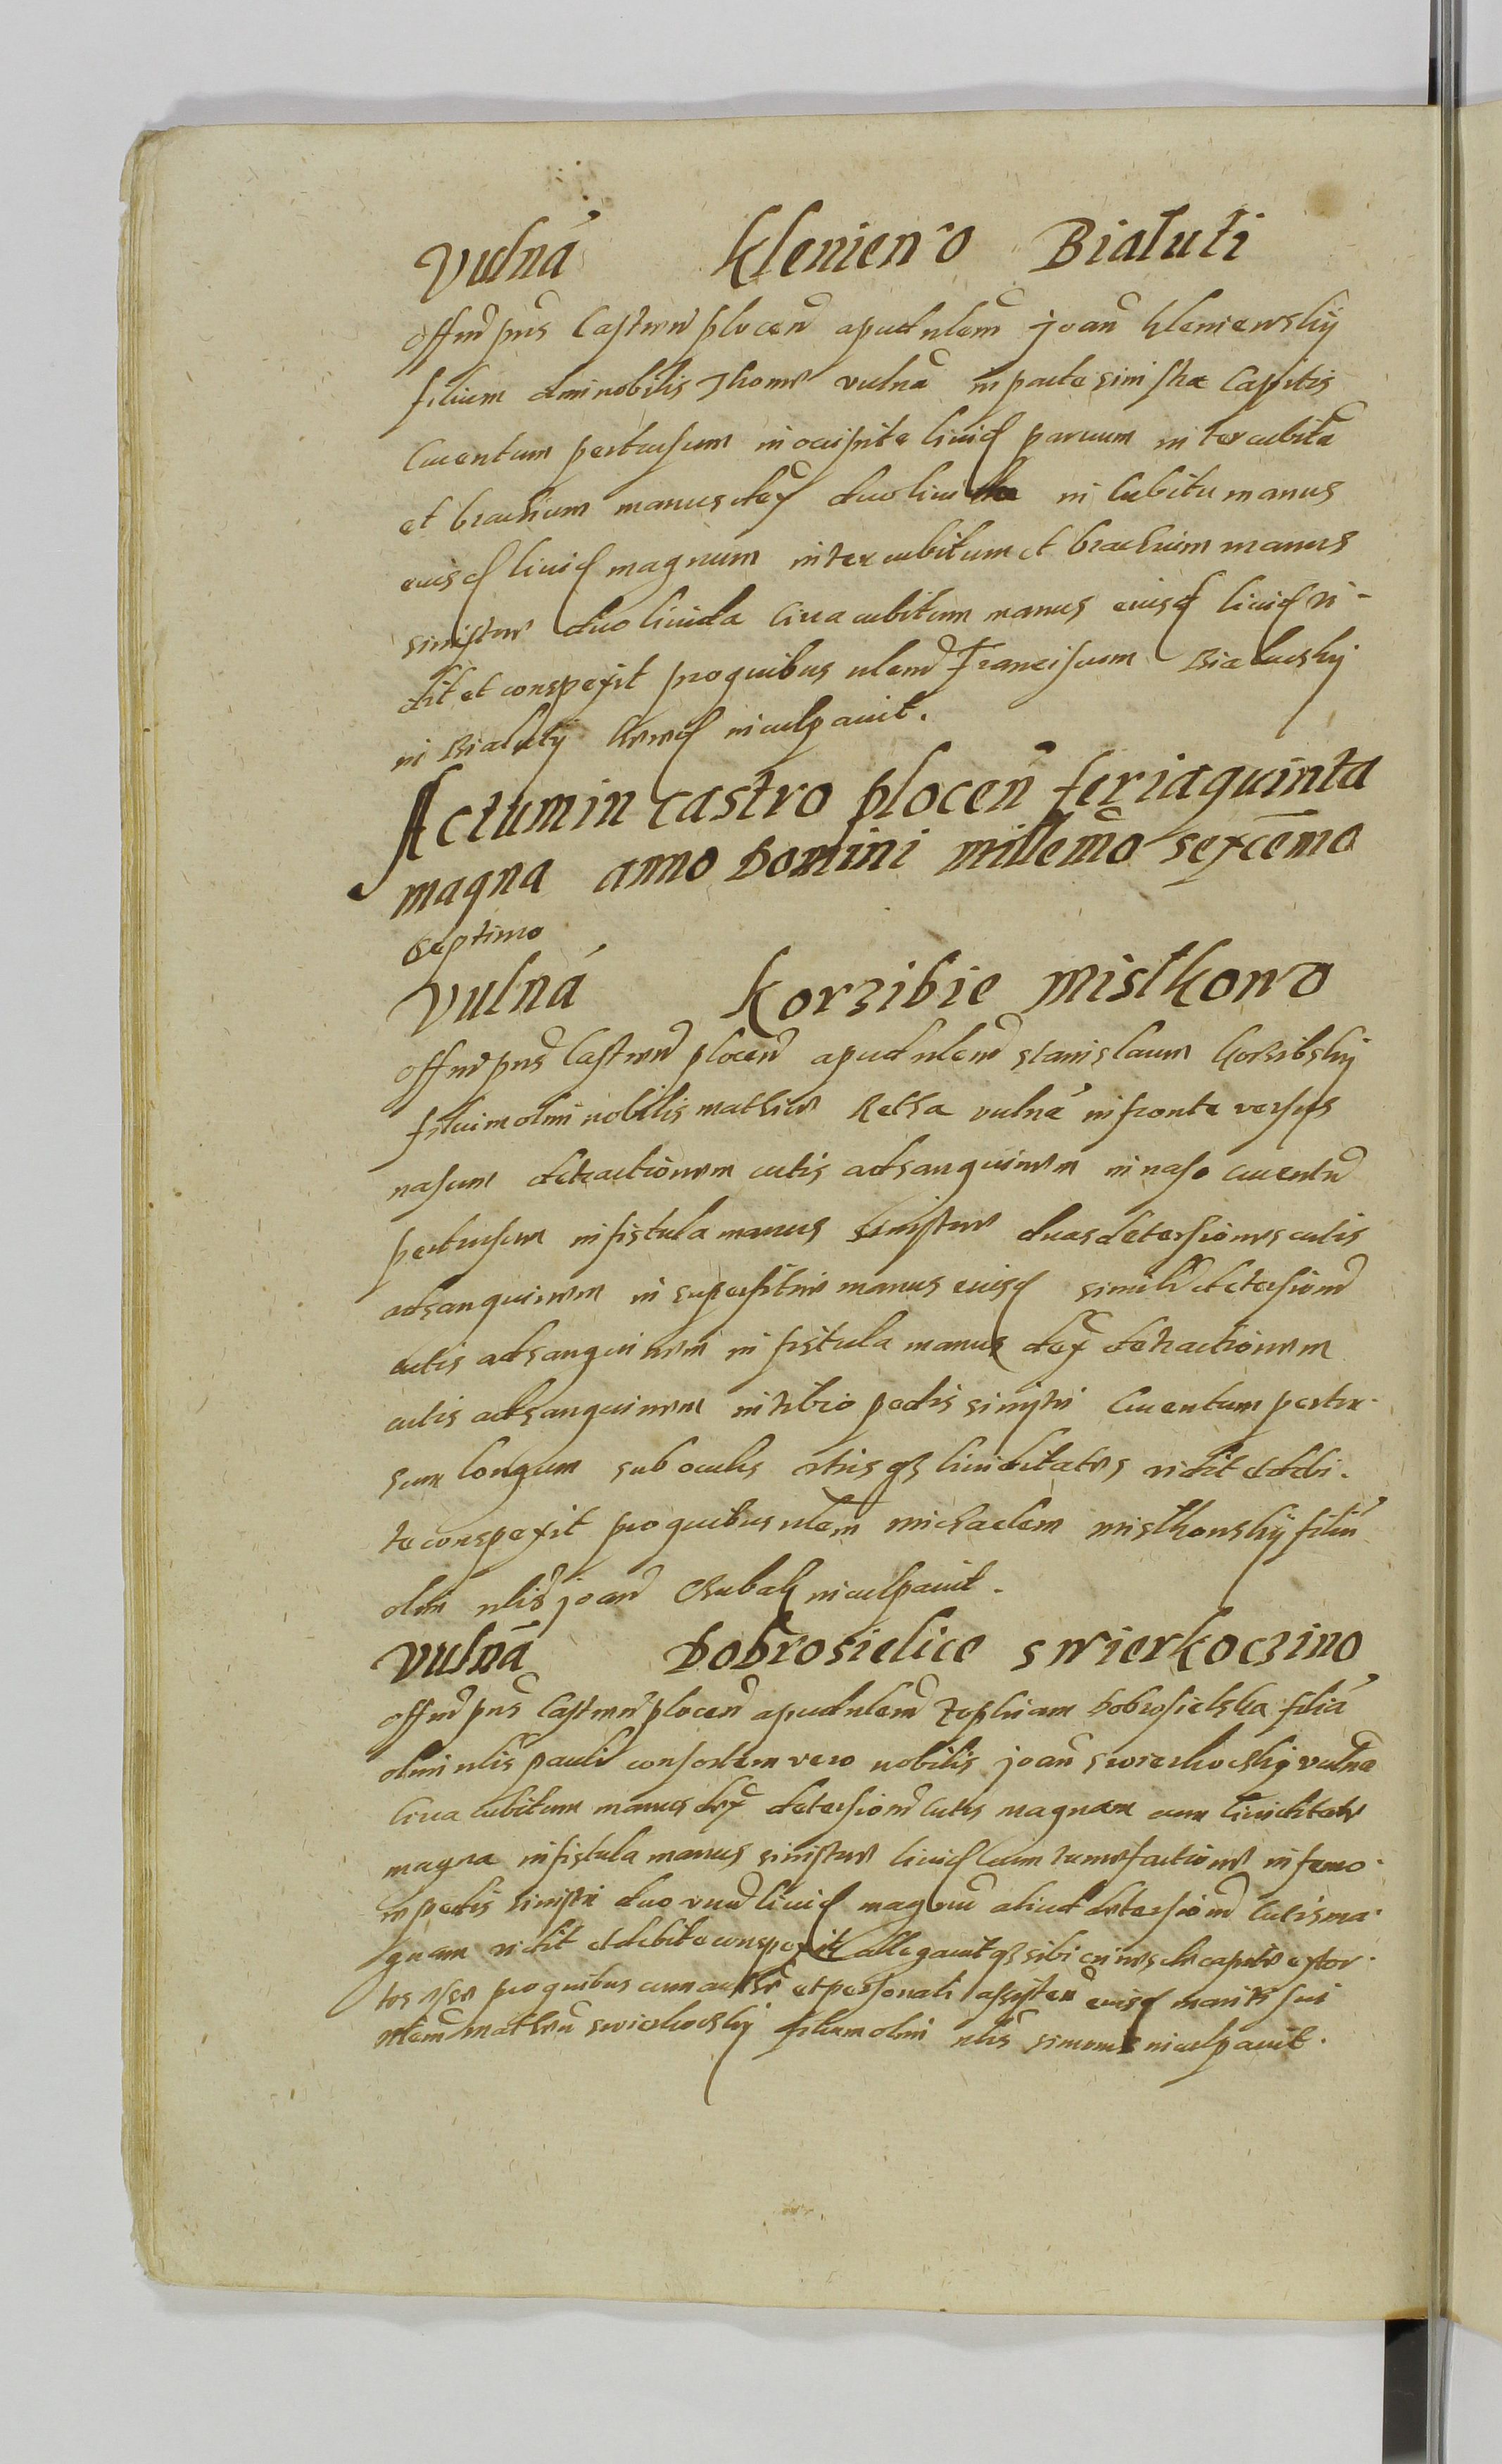 Vulna Kleniewo Bialuti
Offm pns Castren plocen apud nlem joan Kleniewskij
filium olim nobilis Thome vulna in parte sinistra Capitis
Cruentum pertusum in occipite livid parvum inter cubitu
et brachium manus dex duo livida in Cubitu manus
eiusd livid magnum inter cubitum et brachium manus
sinistre duo livida Circa cubitum manus eiusd livid vi-
dit et conspexit pro quibus nlem Franciscum Bialuskij
in Bialuty hered inculpavit.
Actum in castro plocen feria quinta
magna anno Domini millemo sexcemo
septimo
Vulna Korzibie Misthowo
Offm pns Castren plocen apud nlem Stanislaum Korzibskij
filium olim nobilis Mathie Retka vulna in fronte versus
nasum detractionem cutis ad sanguinem in naso cruentu
pertusum in fistula manus sinistre duas detersiones cutis
ad sanguinem in superficie manus eiusd simile detersione
cutis ad sanguinem in fistula manus dex detractionem
cutis ad sanguinem in tibio pedis sinistri Cruentum pertu-
sum longum sub oculis utrisq lividitates vidit et debi-
te conspexit pro quibus nlem Michaelem Misthowskij filiu
olim nlis joan Chubak inculpavit.
Vulna Dobrosielice Swierkoczino
Offm pns Castren plocen apud nlem Zophiam Dobrosielska filia
olim nlis pauli consortem vero nobilis joan Swierkockij vulna
Circa cubitum manus dex detersione Cutis magnam cum lividitate
magna in fistula manus sinistre livid cum tumefactione in femo-
re pedis sinistri duo unu livid magnu aliud detersione Cutis ma-
gnam vidit et debite conspexit allegavit q sibi crines de capite extor-
tos esse pro quibus cum et personali assisten eiusd mariti sui
nlem Mathiu Swierkockij filium olim nlis Simonis inculpavit.